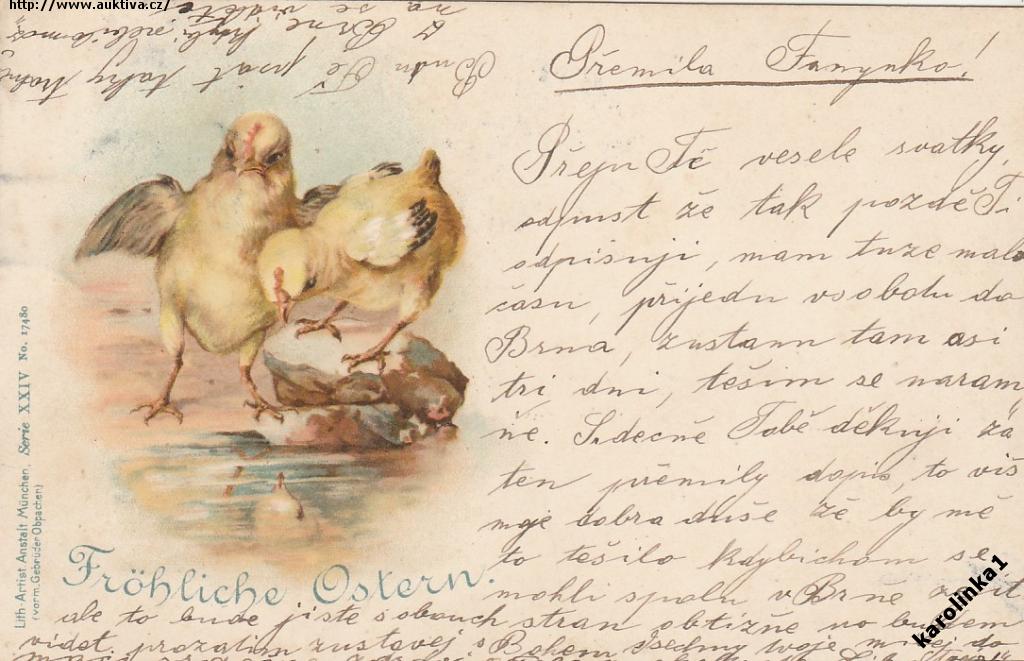 http://www.auktiva.cz/
Přemila Fanynko!
Přeju Tě vesele svatky,
odpust že tak pozdě Ti
odpisuji, mam tuze malo
času, přijedu v sobotu do
Brna, zustanu tam asi
tri dni, těšim se naram
ně. Srdecně Tobě děkuji za
ten přemily dopis, to viš
moje dobra duše že by mě
to těšilo kdybichom se
mohli spolu v Brně
ale to bude jiste s obouch stran obtižne no budem
vidět, prozatim zustavej s Bohem
Budu Tě psat taky
z Brna
na se
Fröhliche Ostern.
Lith-Artist Anstalt München, Serie XXIV No. 17480
(vorm. Gebrüder Obpacher)
karolinka1